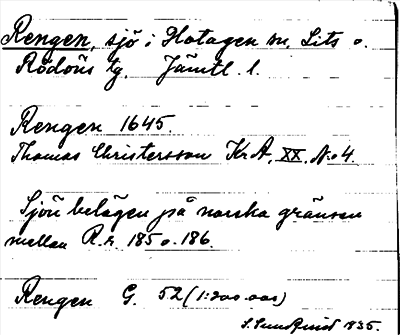 Rengen, sjö i Hotagen sn, Lits o.
Rödöns tg. Jämtl. l.
Rengen 1645.
Thomas Christersson Kr A, XX, No 4.
Sjön belägen på norska gränsen
mellan R. r. 185 o. 186.
Rengen G. 52 (1:200 000)
S. Sundquist 1935.